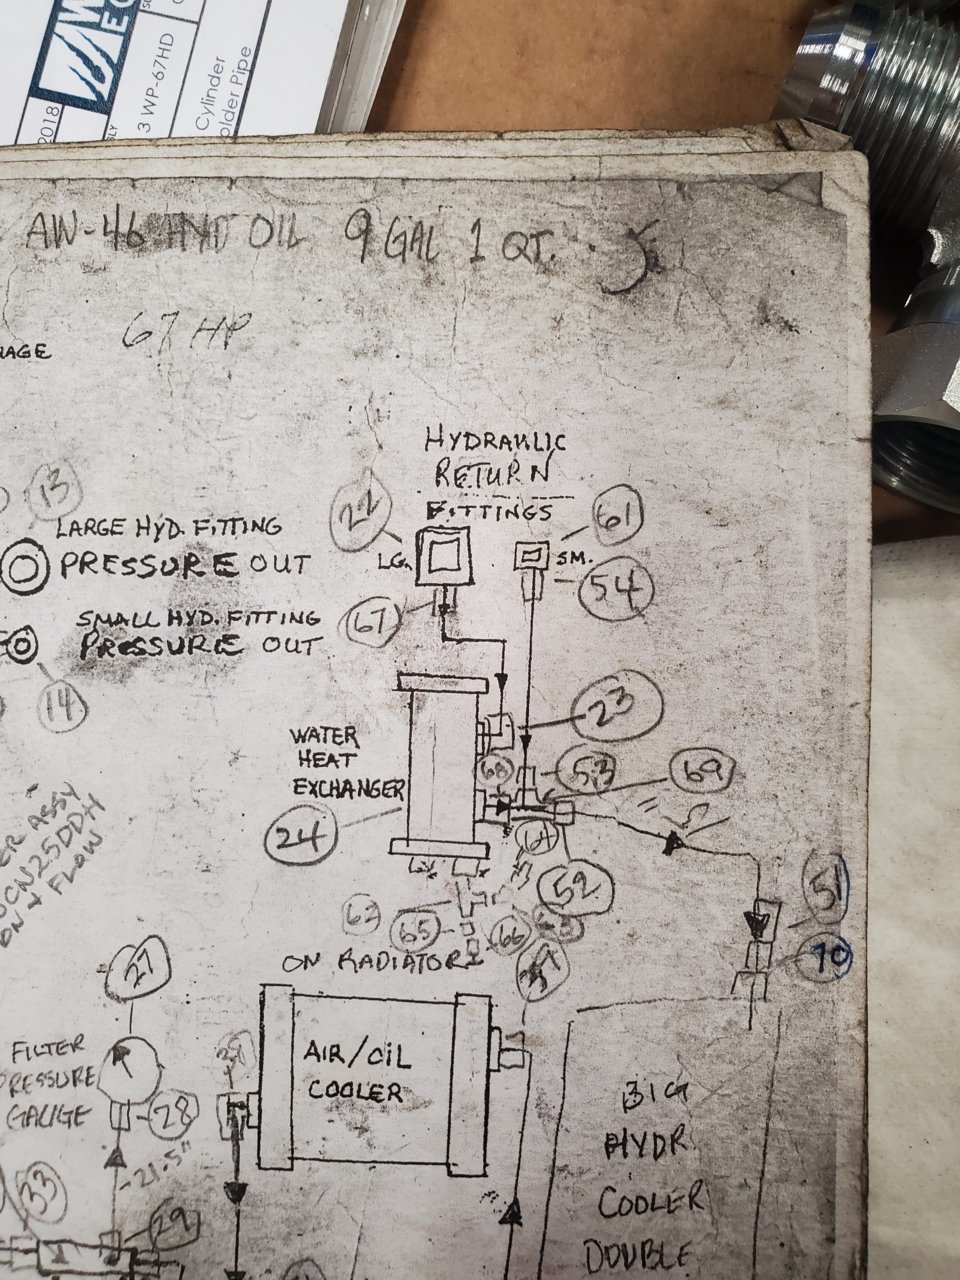 2018
3 WP-67HD
Cylinder
older Pipe
AW-46 HYD OIL 9 GAL 1 QT.
67 HP
HYDRAULIC
RETURN
FITTINGS
13
22
61
LARGE HYD. FITTING
PRESSURE OUT
LG.
SM.
54
67
SMALL HYD. FITTING
PRESSURE OUT
14
23
WATER
HEAT
EXCHANGER
68
53
69
24
64
52
51
62
65
66
63
70
ON RADIATOR
27
FILTER
PRESSURE
GAUGE
28
AIR/OIL
COOLER
-21.5"
33
29
BIG
HYDR
COOLER
DOUBLE